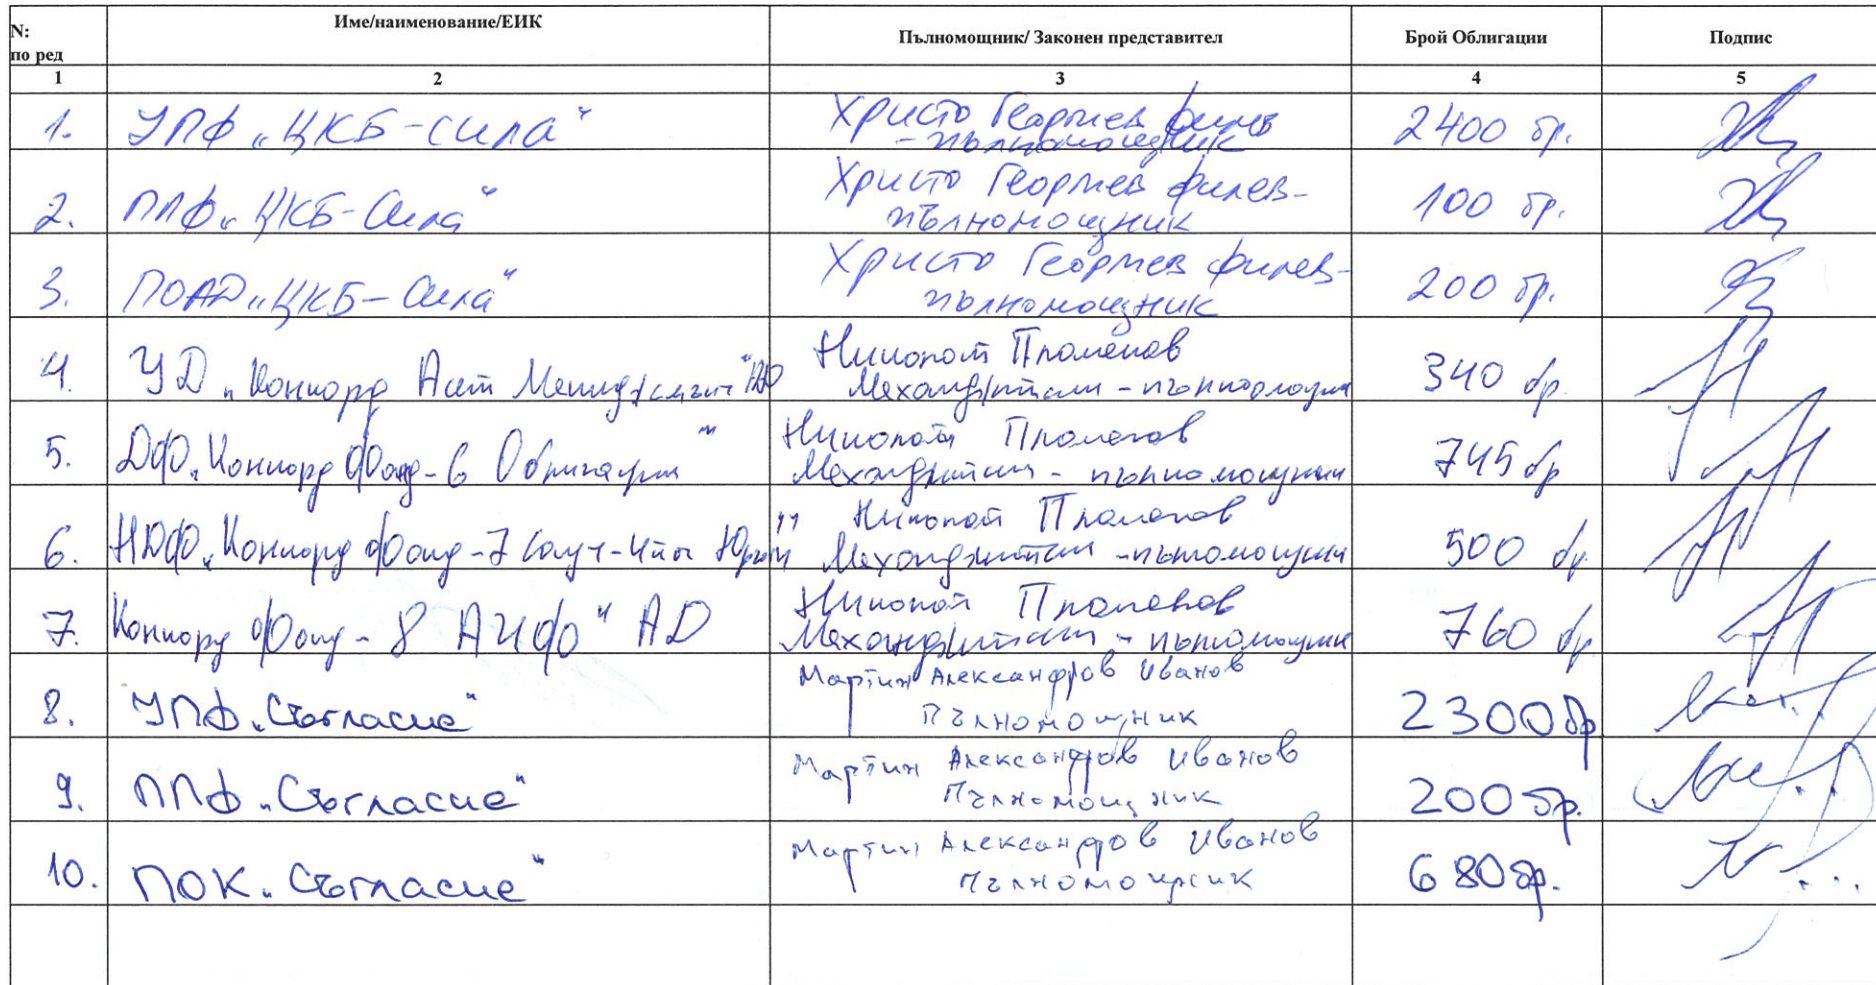 N:
по ред
Име/наименование/ЕИК
Пълномощник/ Законен представител
Брой Облигации
Подпис
1 2 3 4 5
1. УПФ „ЦКБ-сила“ Христо Георгиев Филев 2400 бр.
- пълномощник
2. ППФ „ЦКБ-Сила“ Христо Георгиев Филев- 100 бр.
пълномощник
3. ПОАД „ЦКБ-Сила“ Христо Георгиев Филев- 200 бр.
пълномощник
4. УД „Конкорд Асет Мениджмънт“ АД Николай Пламенов 340 бр.
Механджийски - пълномощник
5. ДФ „Конкорд Фонд-6 Облигации“ Николай Пламенов 745 бр
Механджийски - пълномощник
6. НДФ „Конкорд Фонд-7 Саут-Ийст Юръп“ Николай Пламенов 500 бр.
Механджийски - пълномощник
7. Конкорд Фонд-8 АИФ“ АД Николай Пламенов 760 бр
Механджийски - пълномощник
8. УПФ „Съгласие“ Мартин Александров Иванов 2300 бр
Пълномощник
9. ППФ „Съгласие“ Мартин Александров Иванов 200 бр.
Пълномощник
10. ПОК „Съгласие“ Мартин Александров Иванов 680 бр.
Пълномощник